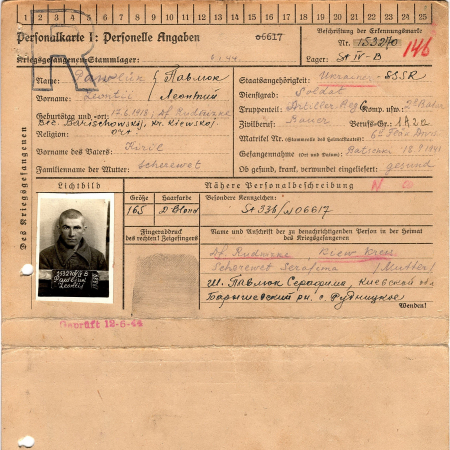 1 2 3 4 5 6 7 8 9 10 11 12 13 14 15 16 17 18 19 20 21 22 23 24 25
R
Personalkarte I: Personelle Angaben
06617
Kriegsgefangenen-Stammlager:
Beschriftung der Erkennungsmarke
Nr. 153240
146
Lager: St IV-B
Des Kriegsgefangenen
Name: Pawljuk / Павлюк
Vorname: Leontij / Леонтий
Geburtstag und -ort: 17.6.1918, Df. Rudnizke
Bez. Barischowskij, Kr. Kiewskoj
Religion: ort
Vorname des Vaters: Kiril
Familienname der Mutter: Scherewet
Staatsangehörigkeit: Ukrainer - SSSR
Dienstgrad: Soldat
Truppenteil: Artiller. Reg
Zivilberuf: Bauer Berufs-Gr.:
Matrikel Nr. (Stammrolle des Heimatstaates)
Gefangennahme (Ort und Datum):
Ob gesund, krank, verwundet eingeliefert: gesund
Lichtbild
Nähere Personalbeschreibung
Größe
Haarfarbe
Besondere Kennzeichen:
165
D'blond
St 336/06617
Fingerabdruck
des rechten! Zeigefingers
Name und Anschrift der zu benachrichtigenden Person in der Heimat
des Kriegsgefangenen
Df. Rudnizke Kiew
Scherewet Serafina / Mutter /
Павлюк Серафима, Киевской обл
Барышевский рн. с. Рудницкое
Wenden!
Pawljuk
Leontij
Geprüft 12-6-44